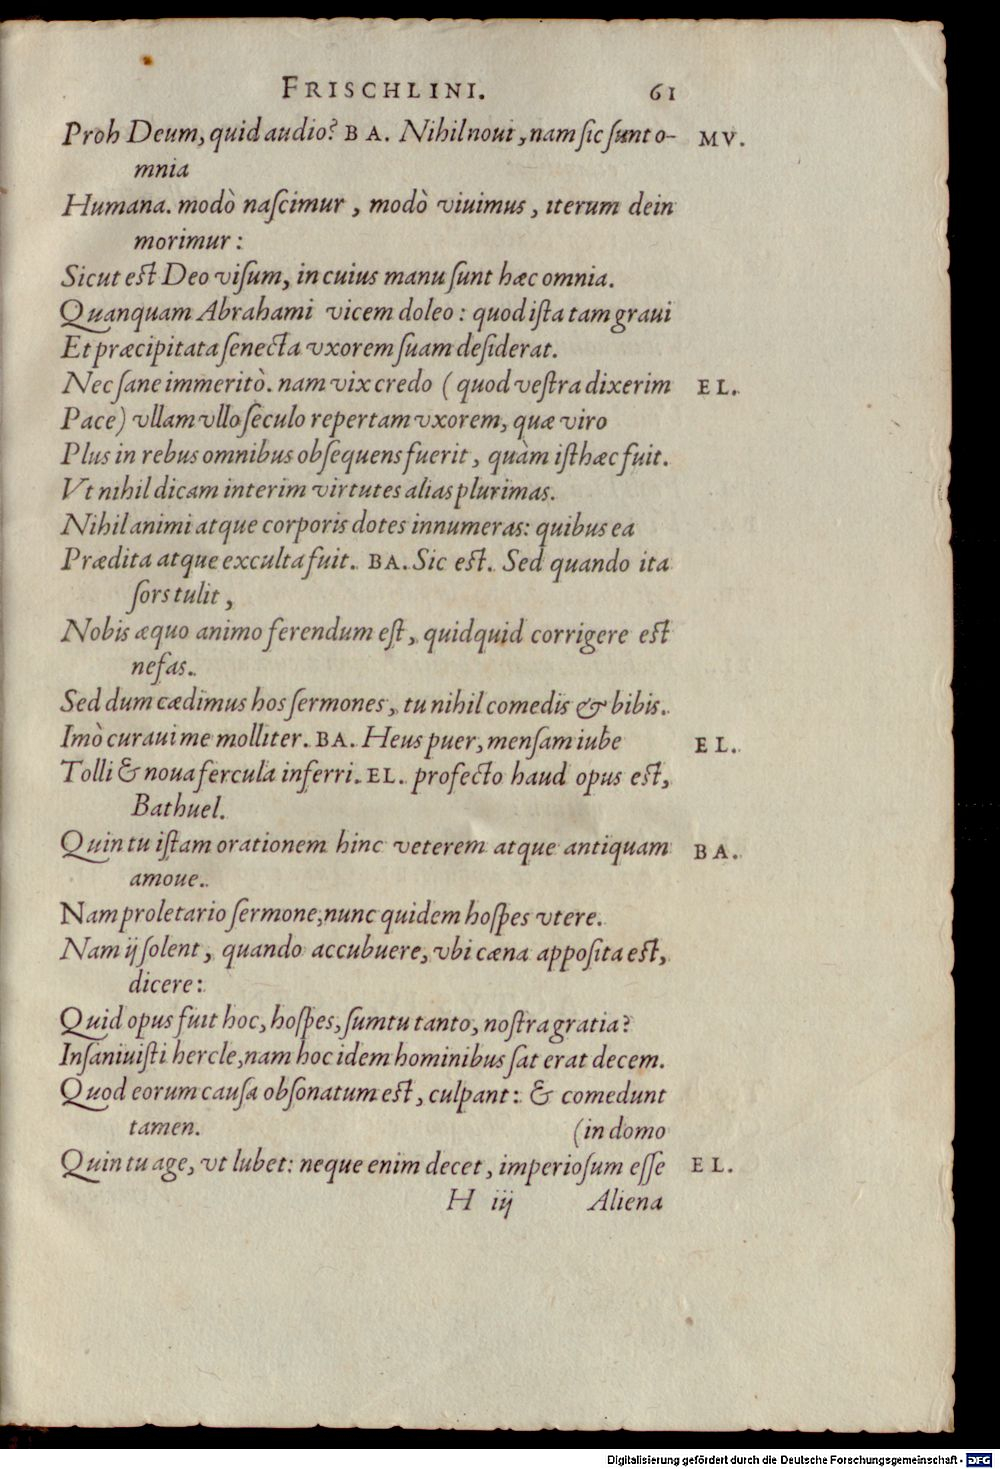 FRISCHLINI. 61
Proh Deum, quid audio? BA. Nihil noui, nam sic sunt o- MV.
mnia
Humana. modò nascimur, modò viuimus, iterum dein
morimur:
Sicut est Deo visum, in cuius manu sunt hæc omnia.
Quanquam Abrahami vicem doleo: quod ista tam graui
Et præcipitata senecta vxorem suam desiderat.
Nec sane immeritò. nam vix credo (quod vestra dixerim EL.
Pace) vllam vllo seculo repertam vxorem, quæ viro
Plus in rebus omnibus obsequens fuerit, quàm isthæc fuit.
Vt nihil dicam interim virtutes alias plurimas.
Nihil animi atque corporis dotes innumeras: quibus ea
Prædita atque exculta fuit. BA. Sic est. Sed quando ita
sors tulit,
Nobis æquo animo ferendum est, quidquid corrigere est
nefas.
Sed dum cædimus hos sermones, tu nihil comedis & bibis.
Imò curaui me molliter. BA. Heus puer, mensam iube EL.
Tolli & noua fercula inferri. EL. profecto haud opus est,
Bathuel.
Quin tu istam orationem hinc veterem atque antiquam BA.
amoue.
Nam proletario sermone, nunc quidem hospes vtere.
Nam ij solent, quando accubuere, vbi cæna apposita est,
dicere:
Quid opus fuit hoc, hospes, sumtu tanto, nostra gratia?
Insaniuisti hercle, nam hoc idem hominibus sat erat decem.
Quod eorum causa obsonatum est, culpant: & comedunt
tamen. (in domo
Quin tu age, vt lubet: neque enim decet, imperiosum esse EL.
H iij Aliena
Digitalisierung gefördert durch die Deutsche Forschungsgemeinschaft - DFG